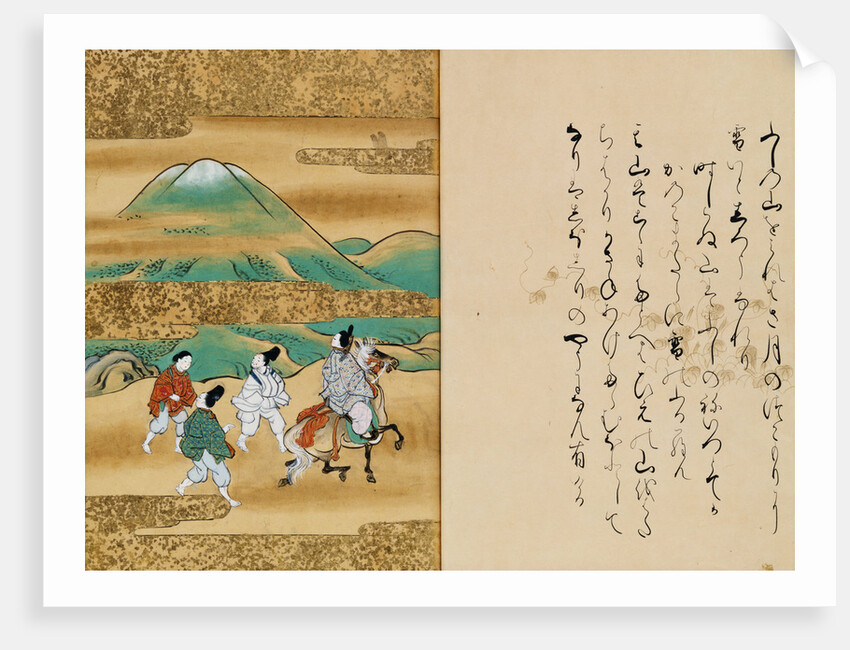 ふしの山をみれはさ月のつこもりに
雪いとしろうふれり
時しらぬ山はふしのねいつとてか
かのこまたらに雪のふるらん
その山はこゝにたとへはひえの山をはた
ちはかりかさねあけたらむほとして
なりはしほしりのやうになん有ける